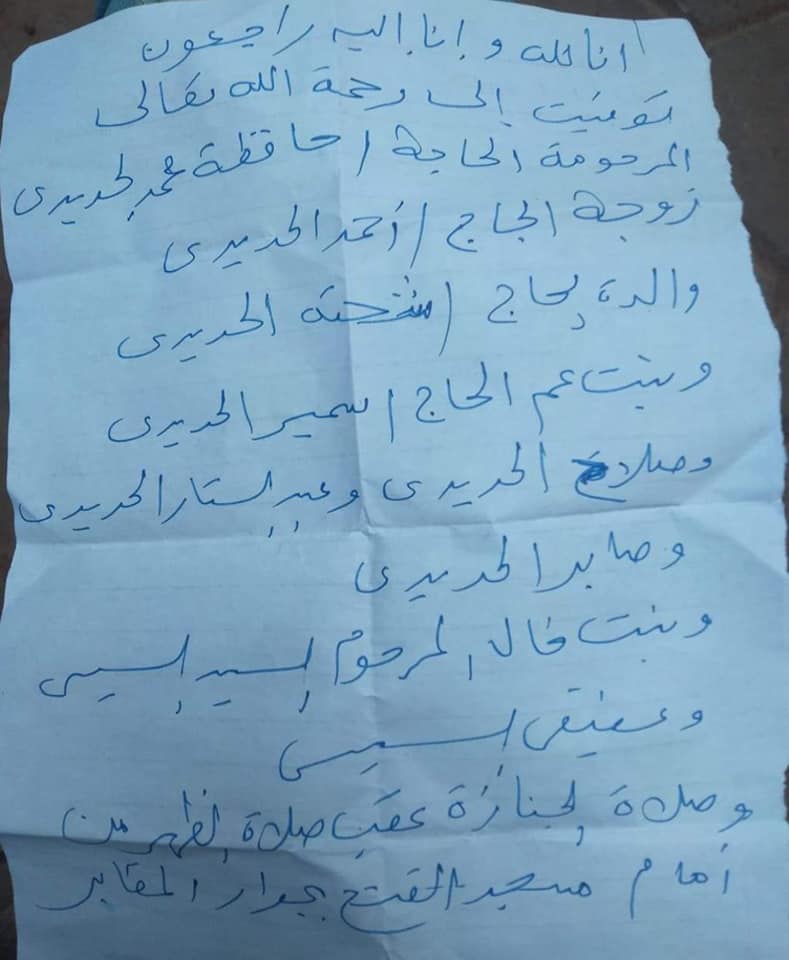 انا لله و إنا إليه راجعون
توفيت إلى رحمة الله تعالى
المرحومة الحاجة / حافظة محمد الحديدى
زوجة الحاج / أحمد الحديدى
والدة الحاج / شحته الحديدى
وبنت عم الحاج / سمير الحديدى
وصلاح الحديدى وعبد الستار الحديدى
وصابر الحديدى
وبنت خال المرحوم السيد السيسى
السيسى
وصلاة الجنازة عقب صلاة الظهر من
أمام مسجد الفتح بجوار المقابر